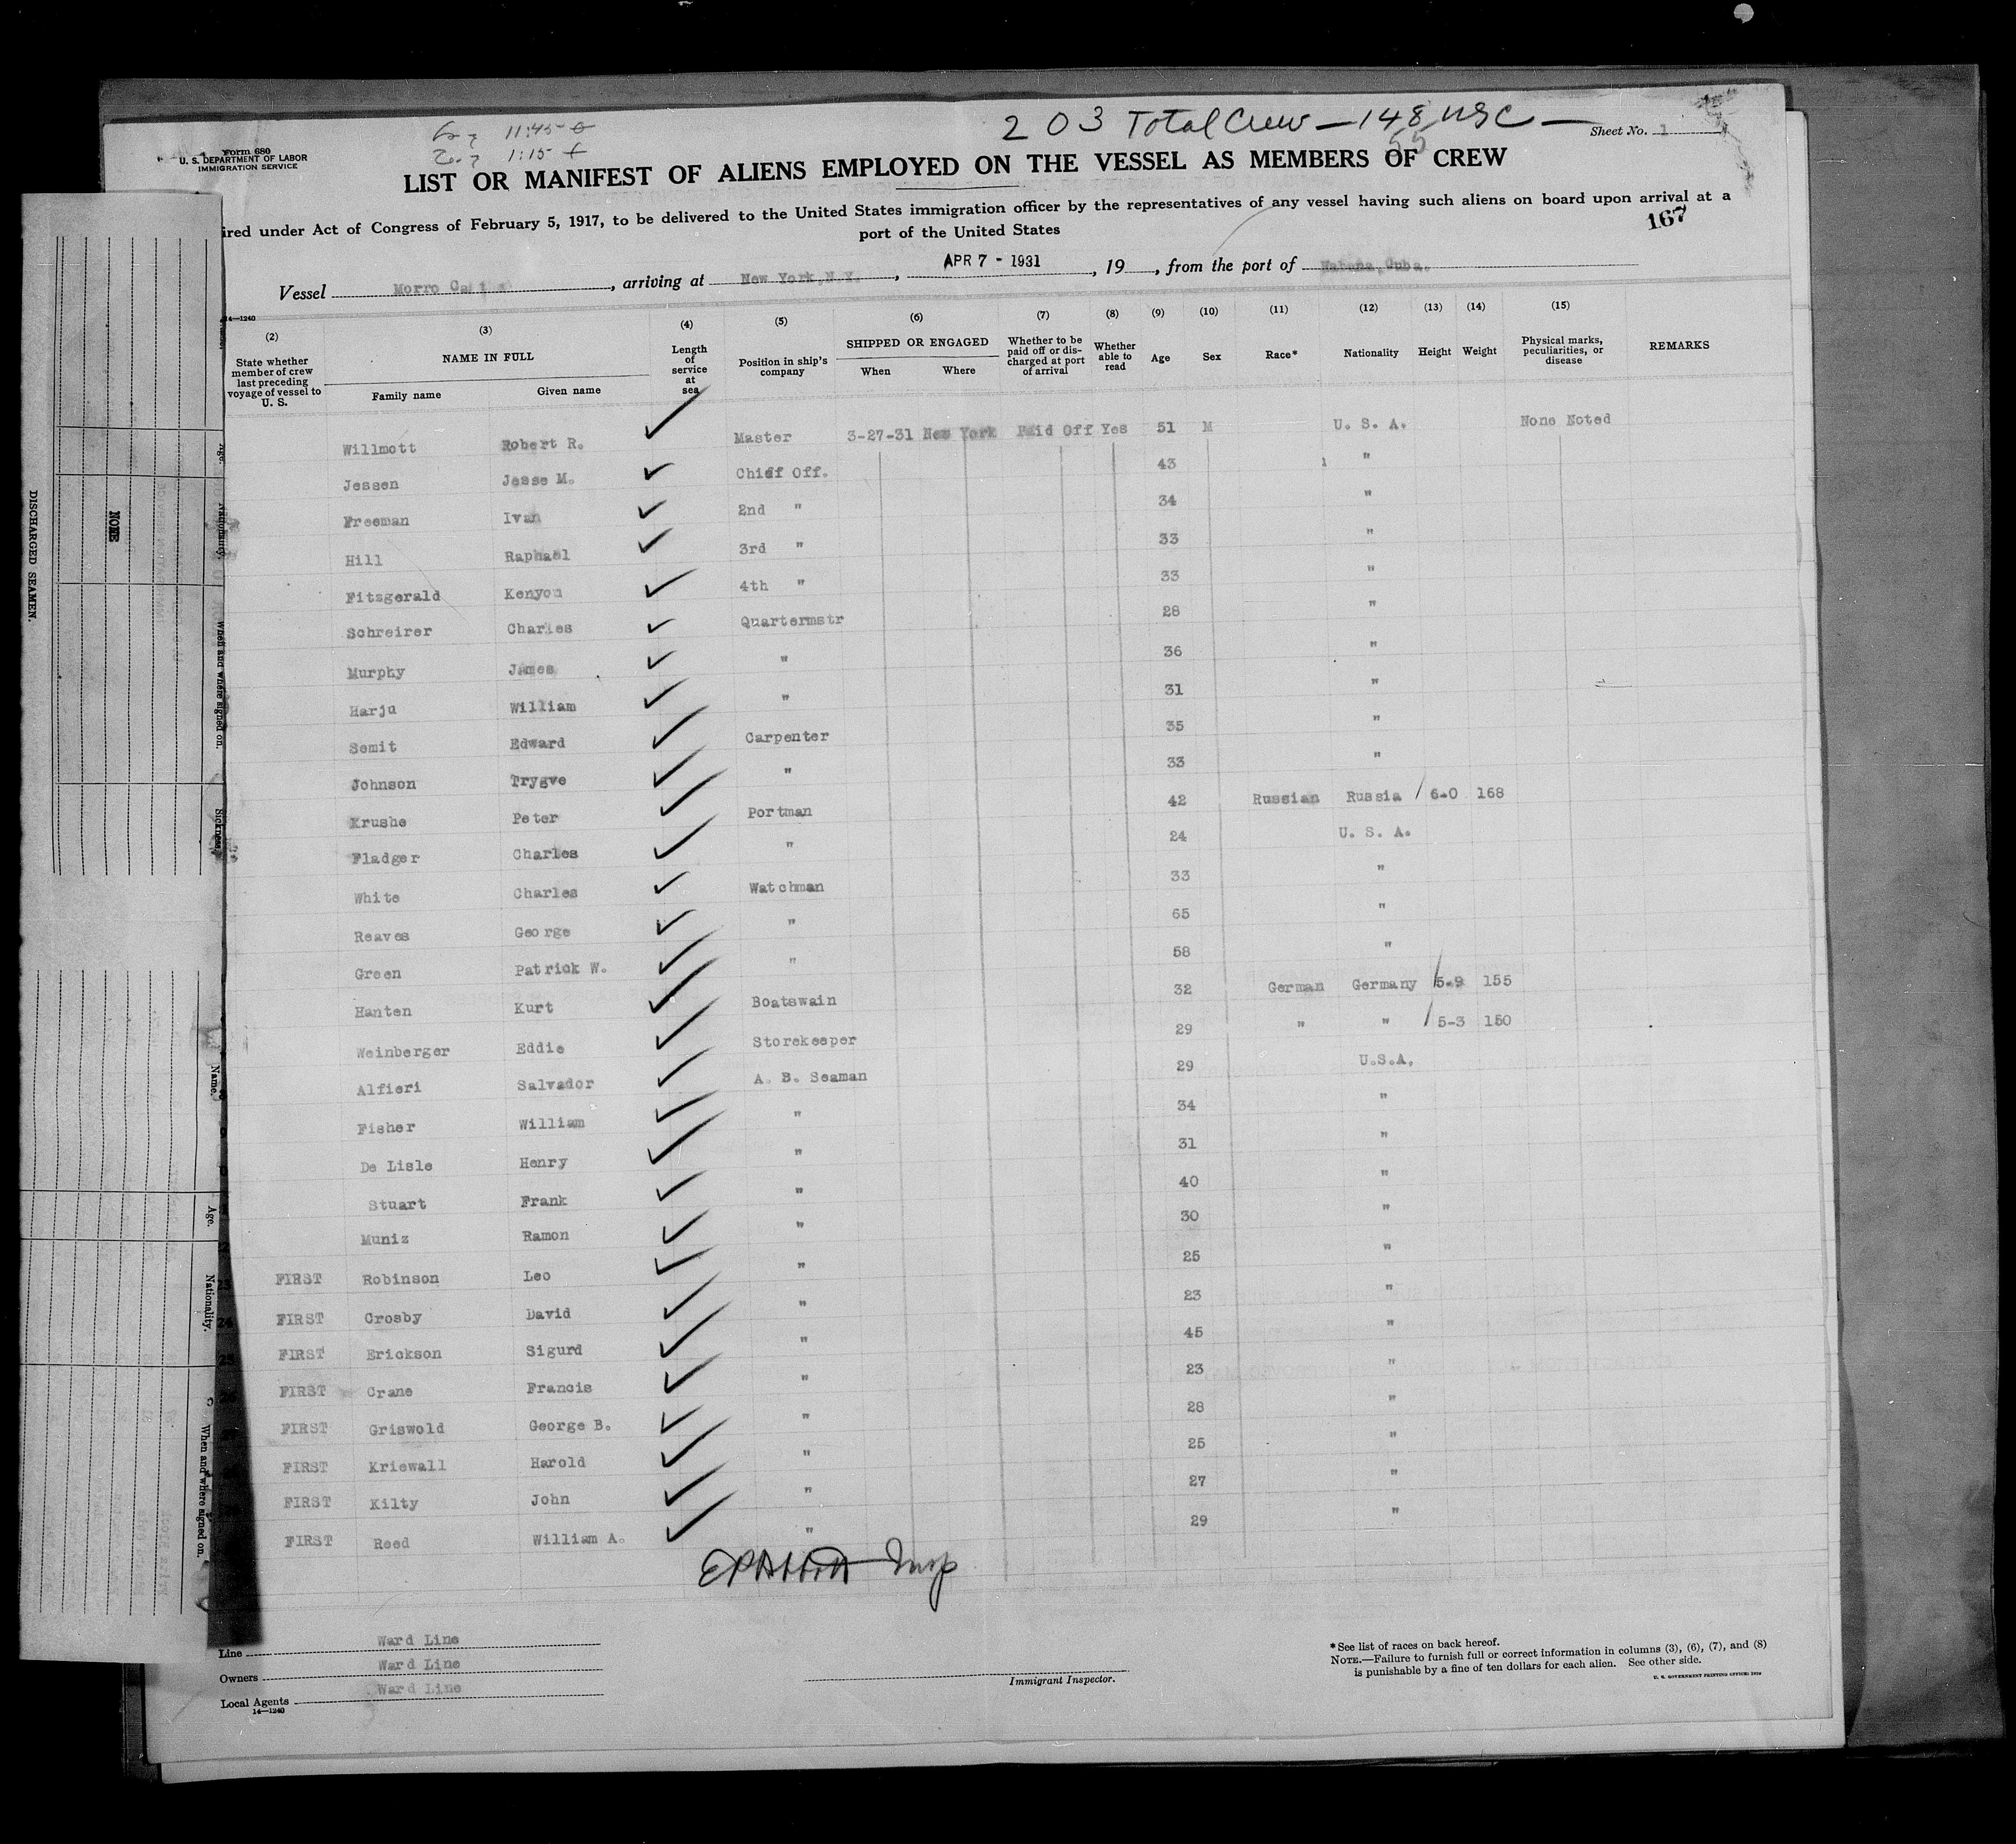 203 Total Crew — 148 USC —
55
11:45
1:15
Form 680
U. S. DEPARTMENT OF LABOR
IMMIGRATION SERVICE
Sheet No. 1
LIST OR MANIFEST OF ALIENS EMPLOYED ON THE VESSEL AS MEMBERS OF CREW
ired under Act of Congress of February 5, 1917, to be delivered to the United States immigration officer by the representatives of any vessel having such aliens on board upon arrival at a
port of the United States
167
Vessel Morro Castle, arriving at New York, N.Y., APR 7 - 1931, 19, from the port of Habana, Cuba.
14—1240
(2) (3) (4) (5) (6) (7) (8) (9) (10) (11) (12) (13) (14) (15)
State whether member of crew last preceding voyage of vessel to U. S. NAME IN FULL Family name Given name Length of service at sea Position in ship's company SHIPPED OR ENGAGED When Where Whether to be paid off or discharged at port of arrival Whether able to read Age Sex Race* Nationality Height Weight Physical marks, peculiarities, or disease REMARKS
Willmott Robert R. Master 3-27-31 New York Paid Off Yes 51 M U. S. A. None Noted
Jessen Jesse M. Chief Off. 43 1 "
Freeman Ivan 2nd " 34 "
Hill Raphael 3rd " 33 "
Fitzgerald Kenyon 4th " 33 "
Schreirer Charles Quartermstr 28 "
Murphy James " 36 "
Harju William " 31 "
Semit Edward Carpenter 35 "
Johnson Trygve " 33 "
Krushe Peter Portman 42 Russian Russia 6-0 168
Fladger Charles " 24 U. S. A.
White Charles Watchman 33 "
Reaves George " 65 "
Green Patrick W. " 58 "
Hanten Kurt Boatswain 32 German Germany 5-9 155
Weinberger Eddie Storekeeper 29 " " 5-3 150
Alfieri Salvador A. B. Seaman 29 U.S.A.
Fisher William " 34 "
De Lisle Henry " 31 "
Stuart Frank " 40 "
Muniz Ramon " 30 "
23 FIRST Robinson Leo " 25 "
24 FIRST Crosby David " 23 "
25 FIRST Erickson Sigurd " 45 "
FIRST Crane Francis " 23 "
FIRST Griswold George B. " 28 "
FIRST Kriewall Harold " 25 "
FIRST Kilty John " 27 "
FIRST Reed William A. " 29 "
Insp
Line Ward Line
Owners Ward Line
Local Agents Ward Line
14—1240
Immigrant Inspector.
*See list of races on back hereof.
NOTE.—Failure to furnish full or correct information in columns (3), (6), (7), and (8)
is punishable by a fine of ten dollars for each alien. See other side.
U. S. GOVERNMENT PRINTING OFFICE: 1930
DISCHARGED SEAMEN.
NONE
Age.
Nationality.
When and where signed on.
Sickness
Name.
Age.
Nationality.
When and where signed on.